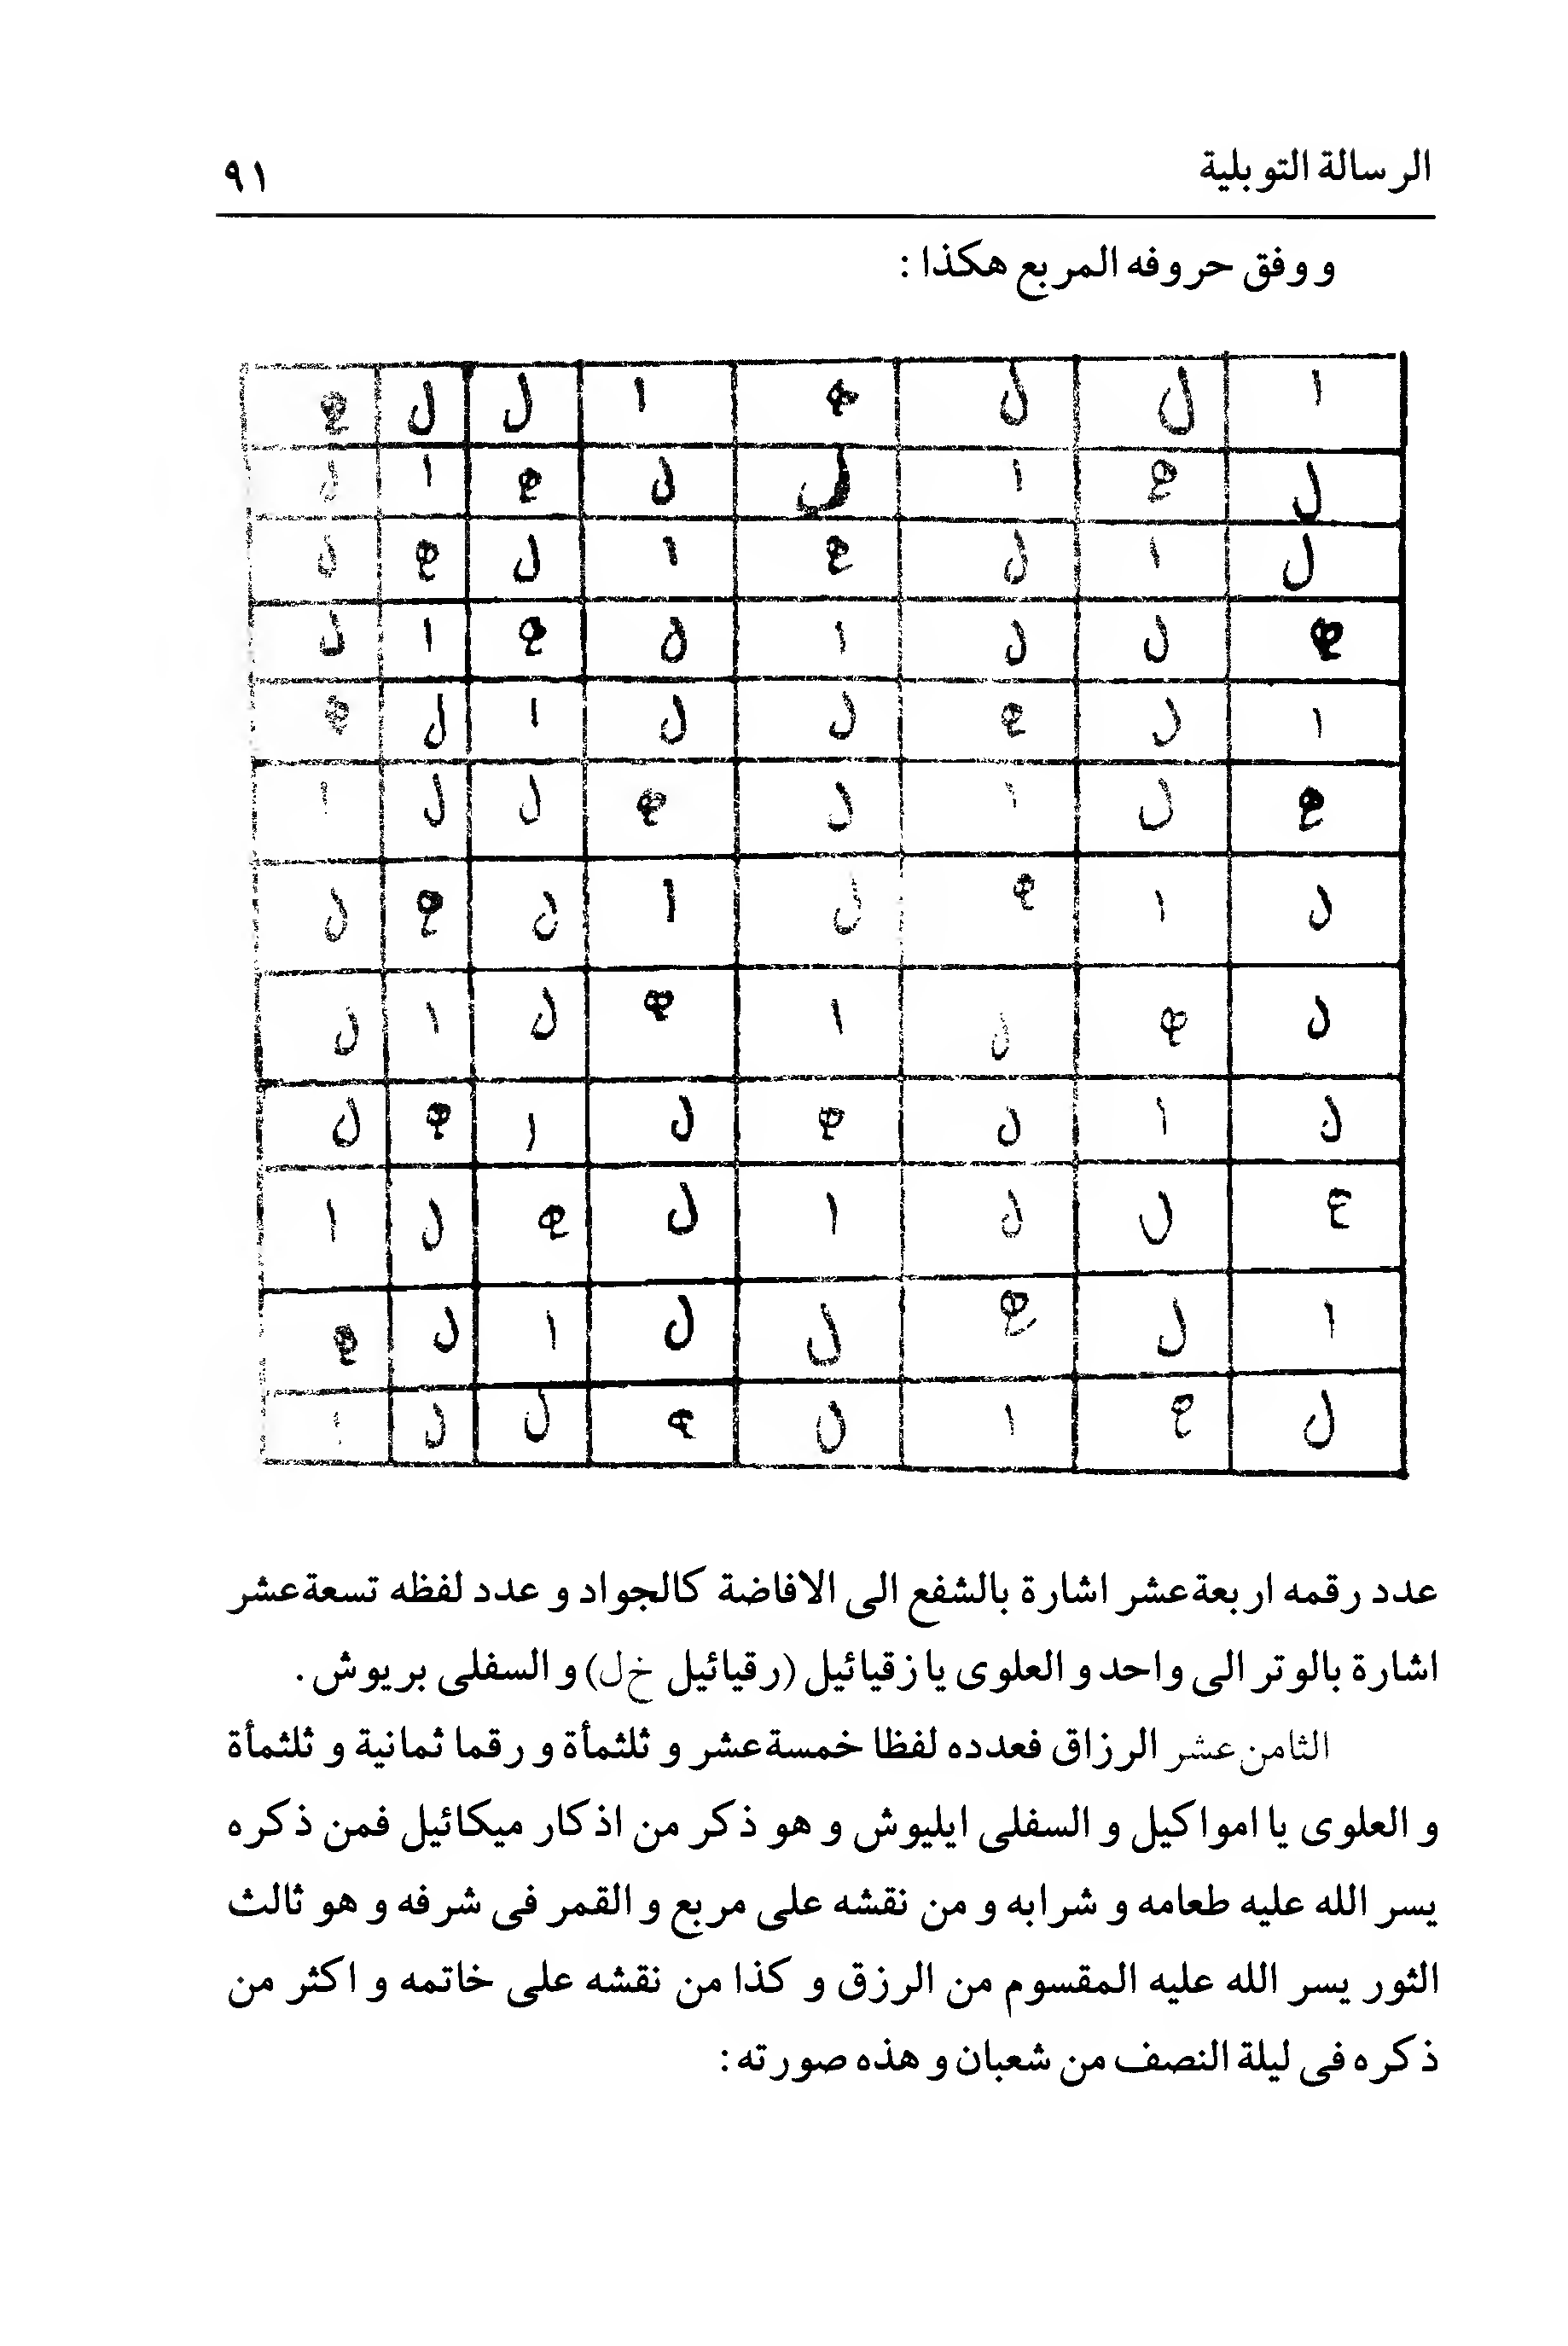 الرسالة التوبلية ٩١
و وفق حروفه المربع هكذا :
ا ل ل ه ا ل ل ه
ل ه ا ل ل ه ا ل
ل ا ل ه ا ل ه ل
ه ل ل ا ل ه ا ل
ا ل ه ل ل ا ل ه
ه ل ا ل ه ل ل ا
ل ا ه ل ا ل ه ل
ل ه ل ا ه ل ا ل
ل ا ل ه ل ا ه ل
ه ل ل ا ل ه ل ا
ا ل ه ل ل ا ل ه
ل ه ا ل ه ل ل ا
عدد رقمه اربعةعشر اشارة بالشفع الى الافاضة كالجواد و عدد لفظه تسعةعشر
اشارة بالوتر الى واحد و العلوى يا زقيائيل (رقيائيل خل) و السفلى بريوش .
الثامن عشر الرزاق فعدده لفظا خمسةعشر و ثلثمأة و رقما ثمانية و ثلثمأة
و العلوى يا امواكيل و السفلى ايليوش و هو ذكر من اذكار ميكائيل فمن ذكره
يسر الله عليه طعامه و شرابه و من نقشه على مربع و القمر فى شرفه و هو ثالث
الثور يسر الله عليه المقسوم من الرزق و كذا من نقشه على خاتمه و اكثر من
ذكره فى ليلة النصف من شعبان و هذه صورته :